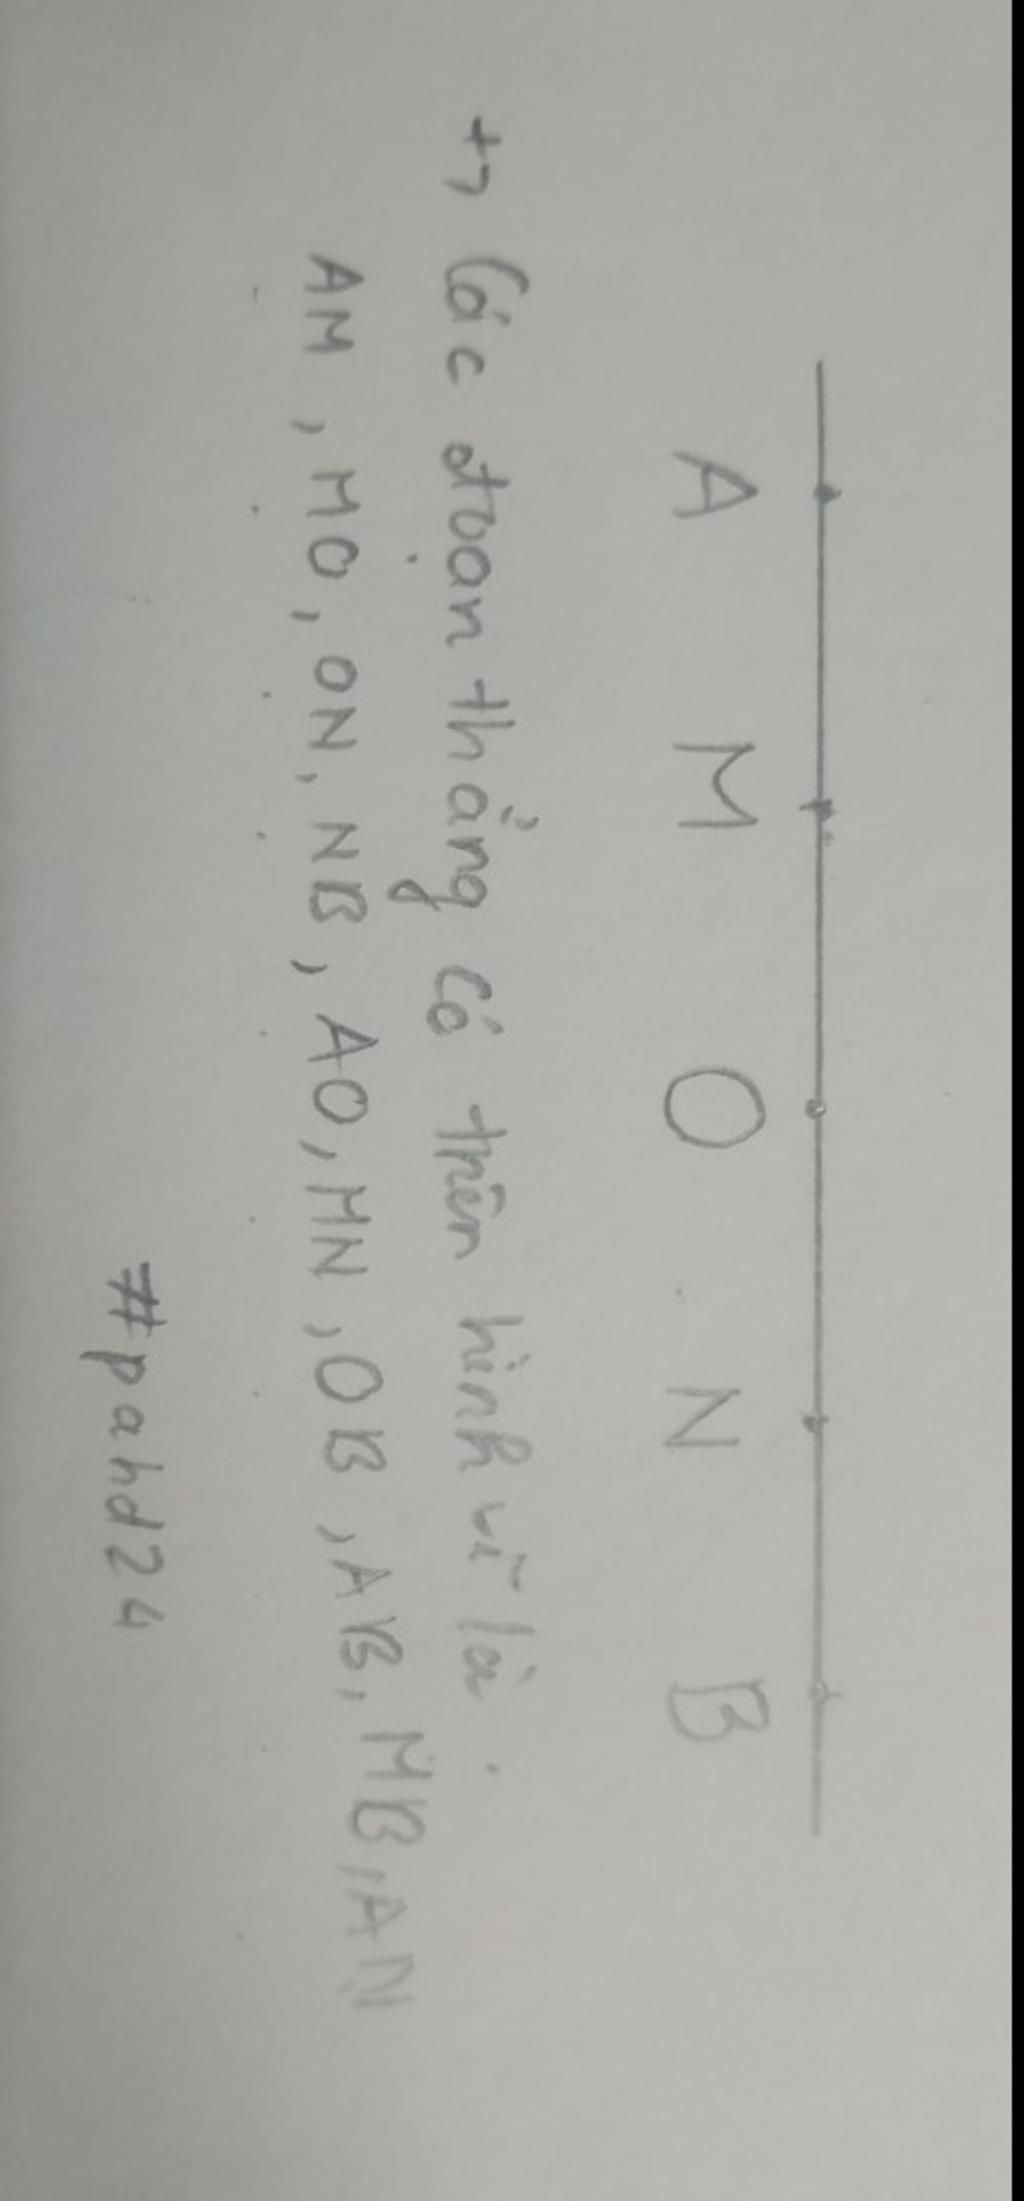 A M O N B
+, Các đoạn thẳng có trên hình vẽ là :
AM, MO, ON, NB, AO, MN, OB, AB, MB, AN
#pahd24